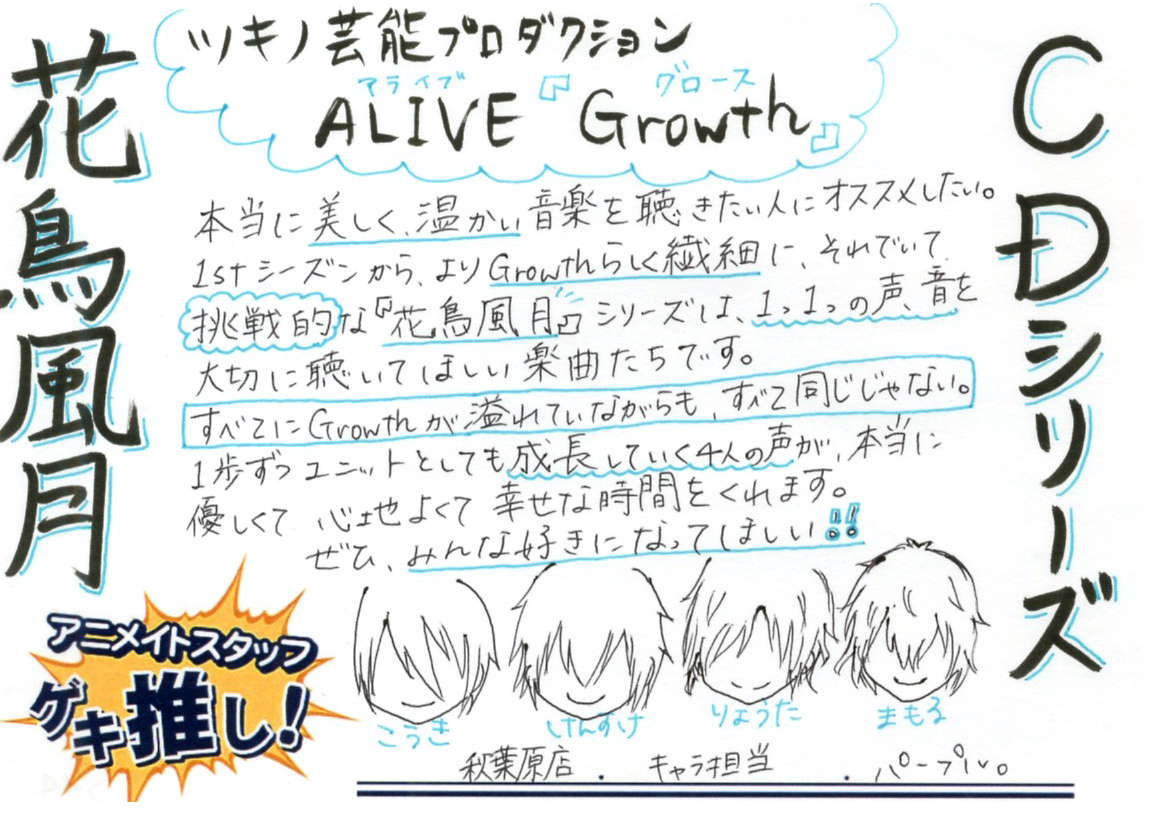 花鳥風月
CDシリーズ
ツキノ芸能プロダクション
アライブ グロース
ALIVE 『Growth』
本当に美しく、温かい音楽を聴きたい人にオススメしたい。
1stシーズンから、よりGrowthらしく繊細に、それでいて
挑戦的な『花鳥風月』シリーズは、1つ1つの声、音を
大切に聴いてほしい楽曲たちです。
すべてにGrowthが溢れていながらも、すべて同じじゃない。
1歩ずつユニットとしても成長していく4人の声が、本当に
優しくて 心地よくて 幸せな時間をくれます。
ぜひ、みんな好きになってほしい!!
こうき けんすけ りょうた まもる
アニメイトスタッフ
ゲキ推し!
秋葉原店 . キャラ担当 . パープル。